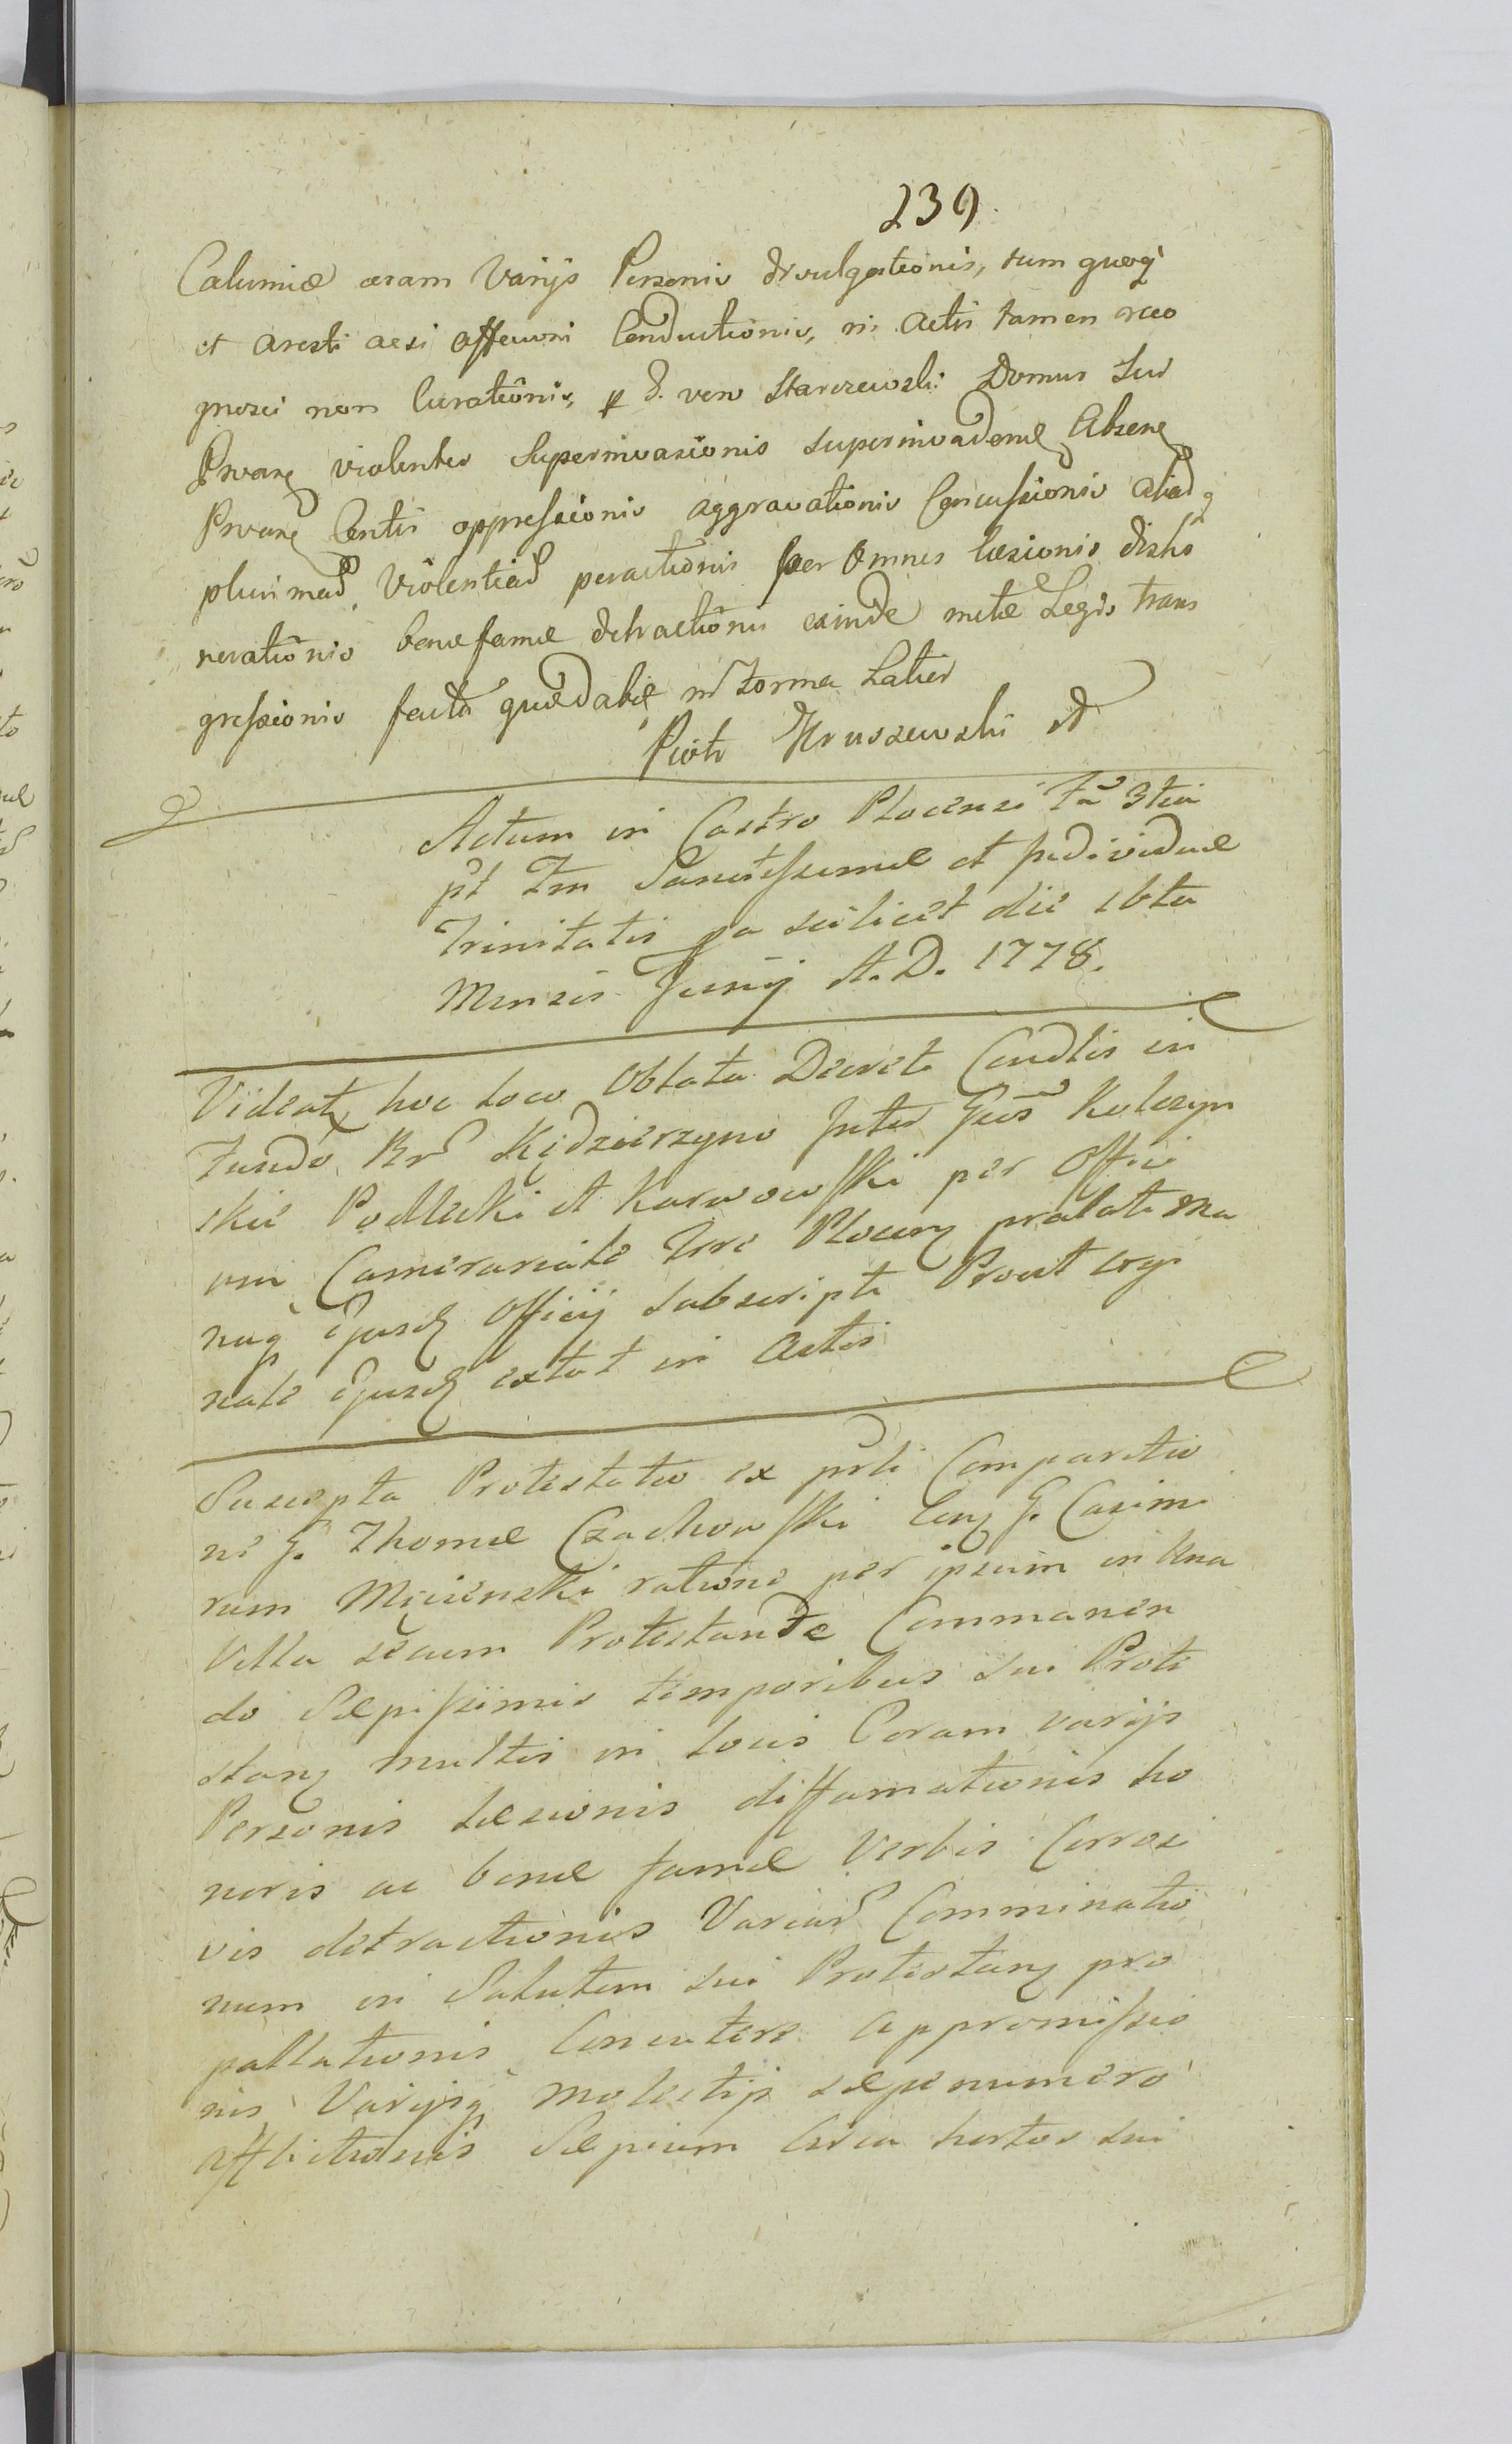 239.
Calumiæ coram Varijs Personis divulgationis, tum quoq
et aresti acsi Offensoni Conductionis, in Actis tamen reco
gnosci non Curationis, p G. vero Starczewski Domus Suæ
Protanẽ violentes Superinvasionis superinvadendẽ Absenẽ
Protanẽ Contis oppressionis aggravationis Concussionis aliarq
plurimar Violentiar peractionis per Omnes læsionis disho
nerationis benefamæ detractionis exinde metæ Legis trans
gressionis facta quæ Dabit in forma Latior
Piotr Kruszewski
Actum in Castro Plocensi fa 3tia
pt Fm Sanctissimæ et Individuæ
Trinitatis pa scilicet die 16ta
Mensis Junij A. D. 1778.
Videat hoc loco Oblata Decreti Condlis in
Fundo Br Kędzierzyno Inter Gens Kolczyn
skie Podlecki et Karwowski per Offici
um Camerariale Tre Plocen prolati Ma
nuq ejusd Officij subscripti Prout orygi
nale ejusd extat in Actis
Suscepta Protestatio ex prli Comparitio
ne G. Thomæ Czachowski Con G. Casimi
rum Mycienski ratione per ipsum in Una
Villa secum Protestande Commanen
do Sæpissimis temporibus sui Prote
stanẽ multis in locis Coram varijs
Personis læsionis diffamationis ho
noris ac bonæ famæ Verbis Corrosi
vis detractionis Variar Comminatio
num in Salutem sui Protestanẽ pro
pallationis Concutere appromissio
nis Varijsq molestijs sæpenumero
afflictionis Sæpium Circa hortos sui